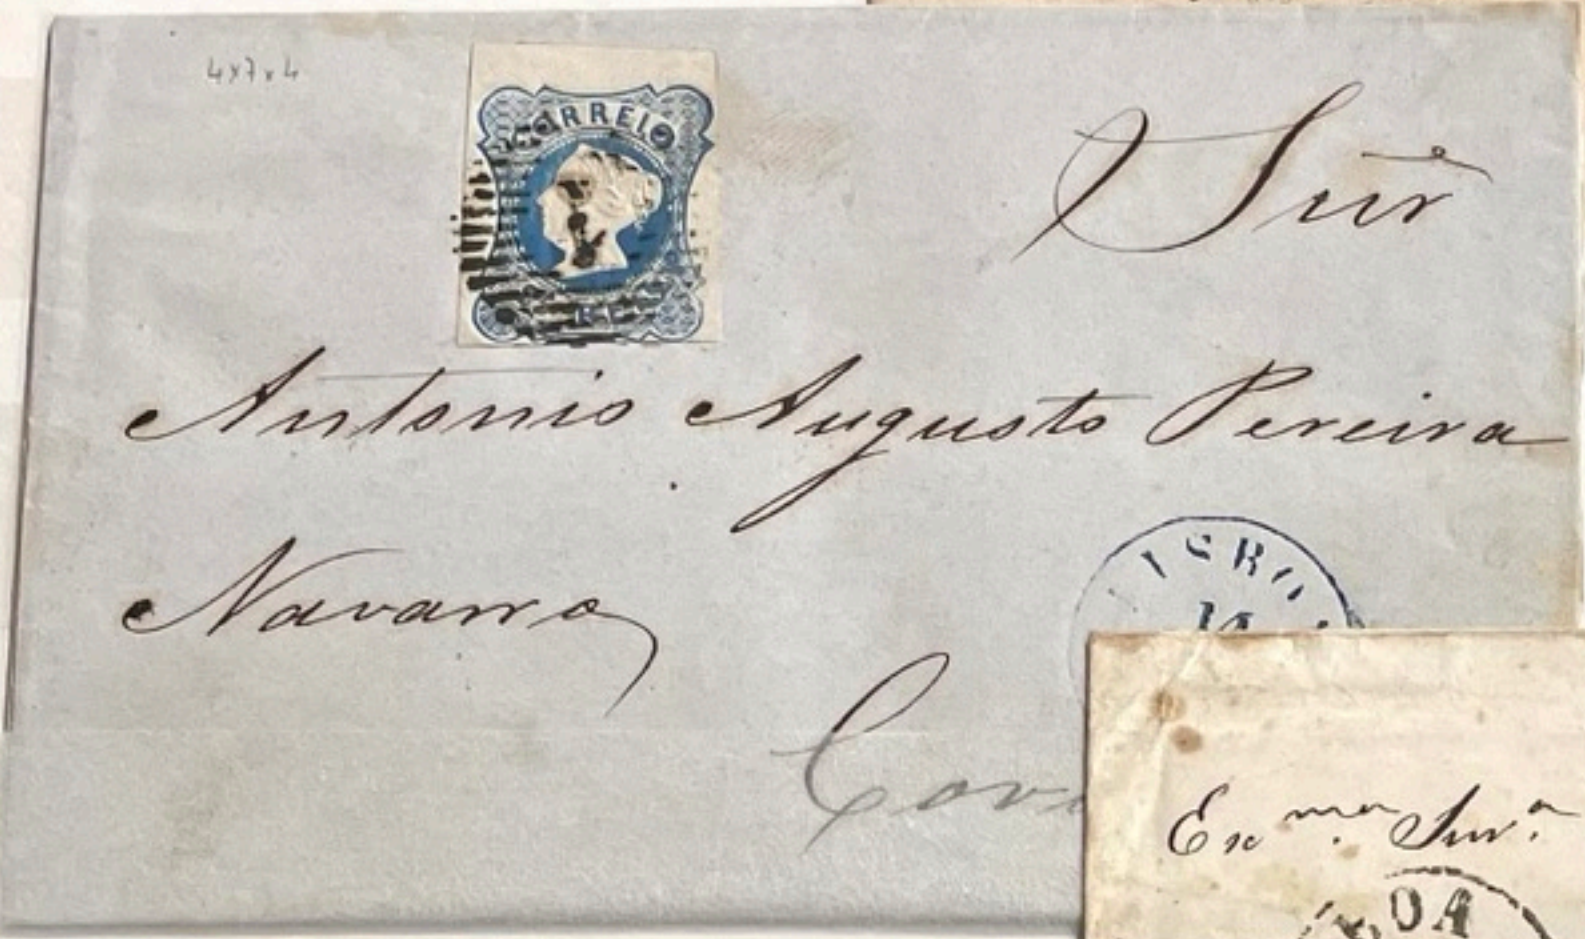 4x7x4
CORREIO
Snr
Antonio Augusto Pereira
Navarro
LISBOA
14
Cov
Exma. Snra.
BOA